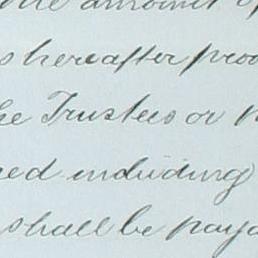 the amount of
s hereafter pro
he Trustees or
ed including
shall be paya